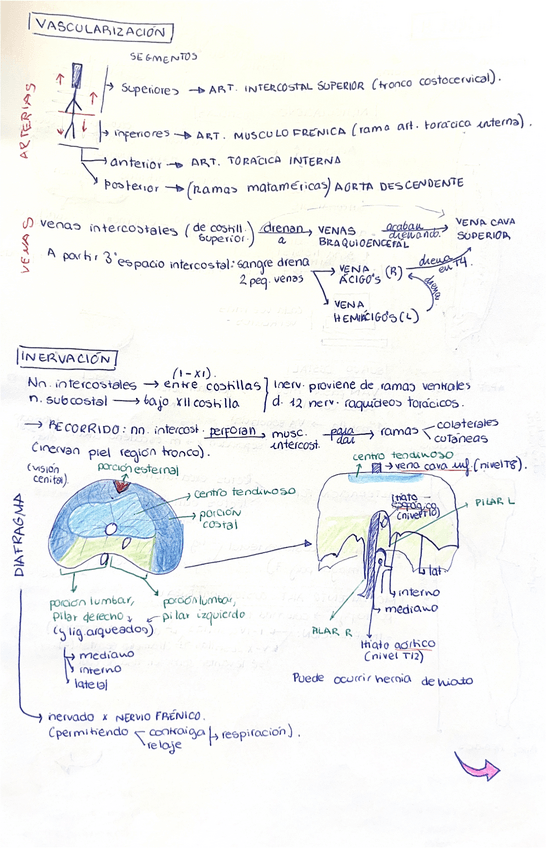 VASCULARIZACIÓN
SEGMENTOS
ARTERIAS
Superiores → ART. INTERCOSTAL SUPERIOR (tronco costocervical).
inferiores → ART. MUSCULO FRÉNICA (rama art. torácica interna).
anterior → ART. TORÁCICA INTERNA
posterior → (Ramas mataméricas) AORTA DESCENDENTE
VENAS
venas intercostales (de costill. superior.) drenan a VENAS BRAQUIOENCEFAL acaban drenando. VENA CAVA SUPERIOR
A partir 3º espacio intercostal: sangre drena 2 peq. venas
VENA ÁCIGOS (R) drena en T4.
VENA HEMIÁCIGOS (L) drena
INERVACIÓN
(I-XI).
Nn. intercostales → entre costillas
n. subcostal → bajo XII costilla
Inerv. proviene de ramas ventrales
d. 12 nerv. raquídeos torácicos.
→ RECORRIDO: nn. intercost. perforan musc. intercost. para dar ramas colaterales cutáneas
(inervan piel región tronco).
DIAFRAGMA
(visión cenital)
porción esternal
centro tendinoso
porción costal
porción lumbar, pilar derecho
(y lig. arqueados)
porción lumbar, pilar izquierdo
mediano
interno
lateral
centro tendinoso
→ vena cava inf. (nivel T8).
hiato esofágico (nivel T10)
PILAR L
lat
interno
mediano
PILAR R
Hiato aórtico
(nivel T12)
Puede ocurrir hernia de hiato
nervado x NERVIO FRÉNICO.
(permitiendo contraiga relaje → respiración).